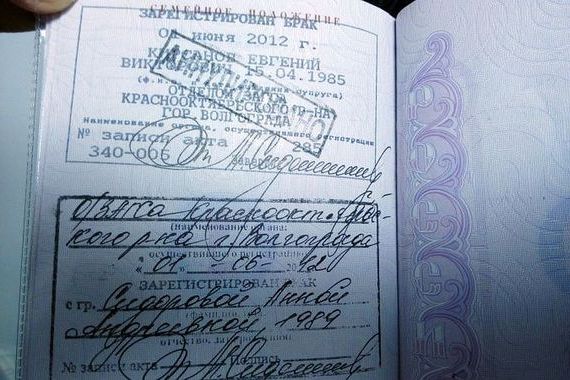 СЕМЕЙНОЕ ПОЛОЖЕНИЕ
ЗАРЕГИСТРИРОВАН БРАК
ИЮНЯ 2012 г.
ЕВГЕНИЙ
15.04.1985
супруга)
КРАСНООКТЯБРЬСКОГО Р-НА
ГОР. ВОЛГОГРАДА
наименование органа, осуществившего регистрацию
№ записи акта 285
340-006
ОЗАГСа Красноокт.
кого р-на г. Волгограда
(наименование органа,
осуществившего регистрацию)
"01" 06 2012
ЗАРЕГИСТРИРОВАН БРАК
с гр. Сидоровой Анной
Андреевной, 1989
отчество, дата рождения)
№ записи акта Подпись